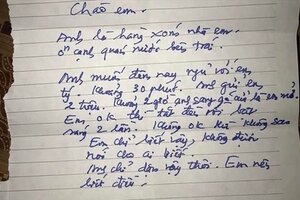 Chào em.
Anh là hàng xóm nhà em.
Ở cạnh quán nước bên trái.
Anh muốn đêm nay ngủ với em
tý. Khoảng 30 phút. Anh gửi em
2 triệu. Khoảng 2 giờ anh sang gõ cửa là em
Em ok thì tắt đèn rồi bật
sáng 2 lần. Không ok thì không sao
Em chỉ biết vậy, không được
nói cho ai biết.
Anh chỉ dặn vậy thôi. Em nên
biết điều.